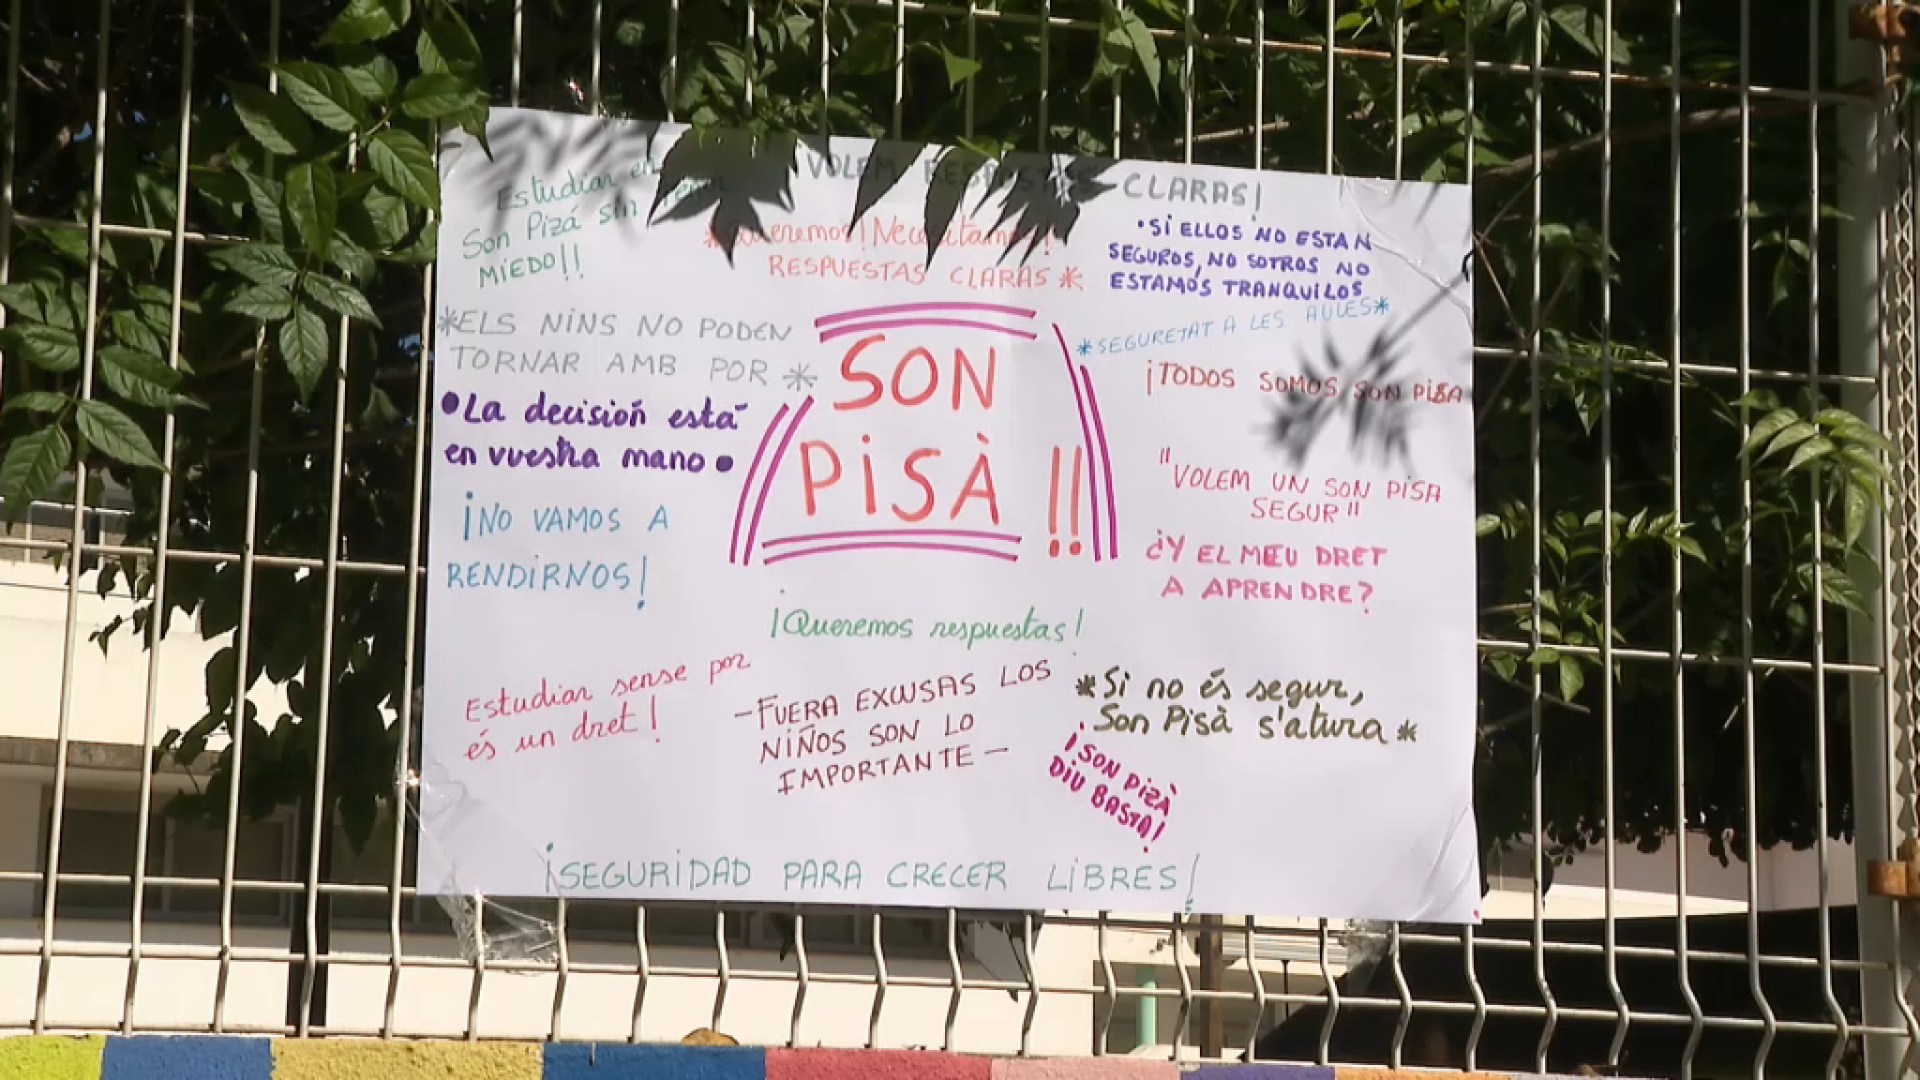 Estudiar en
Son Pizá sin tener
MIEDO!!
VOLEM RESPOSTES CLARAS!
*Queremos! Necesitamos!
RESPUESTAS CLARAS *
• SI ELLOS NO ESTAN
SEGUROS, NOSOTROS NO
ESTAMOS TRANQUILOS
*SEGURETAT A LES AULES*
*ELS NINS NO PODEN
TORNAR AMB POR *
SON
PISÀ !!
¡TODOS SOMOS SON PISA
• La decisión está
en vuestra mano •
"VOLEM UN SON PISA
SEGUR"
¡NO VAMOS A
RENDIRNOS!
¿Y EL MEU DRET
A APRENDRE?
¡Queremos respuestas!
Estudiar sense por
és un dret!
- FUERA EXCUSAS LOS
NIÑOS SON LO
IMPORTANTE -
*Si no és segur,
Son Pisà s'atura *
¡SON PIZÀ
DIU BASTA!
¡SEGURIDAD PARA CRECER LIBRES!